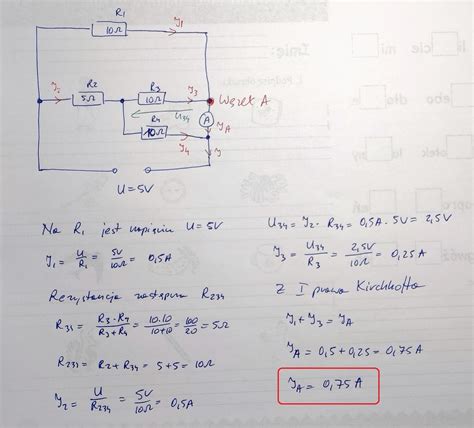 R1
10Ω
I1
I2
R2
5Ω
R3
10Ω
I3
Węzeł A
U34
A
IA
R4
10Ω
I4
I
U=5V
Na R1 jest napięcie U=5V
I1 = U/R1 = 5V/10Ω = 0,5A
Rezystancja zastępcza R234
R34 = R3·R4/R3+R4 = 10·10/10+10 = 100/20 = 5Ω
R234 = R2+R34 = 5+5 = 10Ω
I2 = U/R234 = 5V/10Ω = 0,5A
U34 = I2·R34 = 0,5A·5V = 2,5V
I3 = U34/R3 = 2,5V/10Ω = 0,25A
Z I prawa Kirchhoffa
I1+I3 = IA
IA = 0,5+0,25 = 0,75A
IA = 0,75A